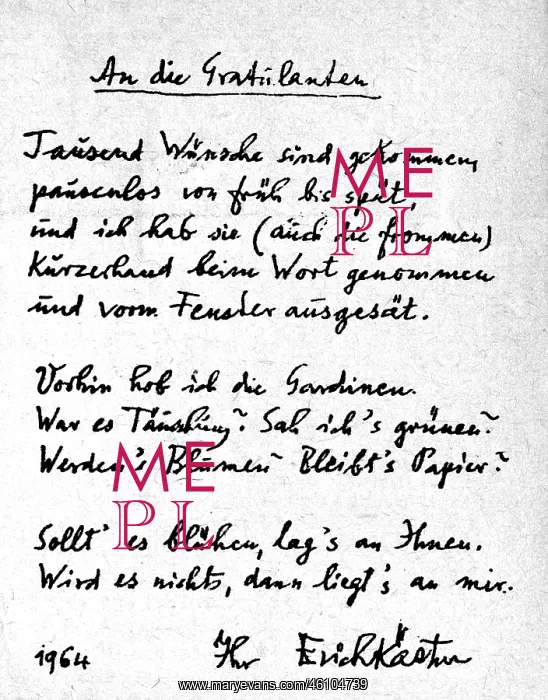 An die Gratulanten
Tausend Wünsche sind gekommen,
pausenlos von früh bis spät,
und ich hab sie (auch die frommen)
kurzerhand beim Wort genommen
und vorm Fenster ausgesät.
Vorhin hob ich die Gardinen.
War es Täuschung? Sah ich's grünen?
Werden's Blumen? Bleibt's Papier?
Sollt' es blühen, lag's an Ihnen.
Wird es nichts, dann liegt's an mir.
1964 Ihr Erich Kästner
ME
PL
ME
PL
www.maryevans.com/46104739